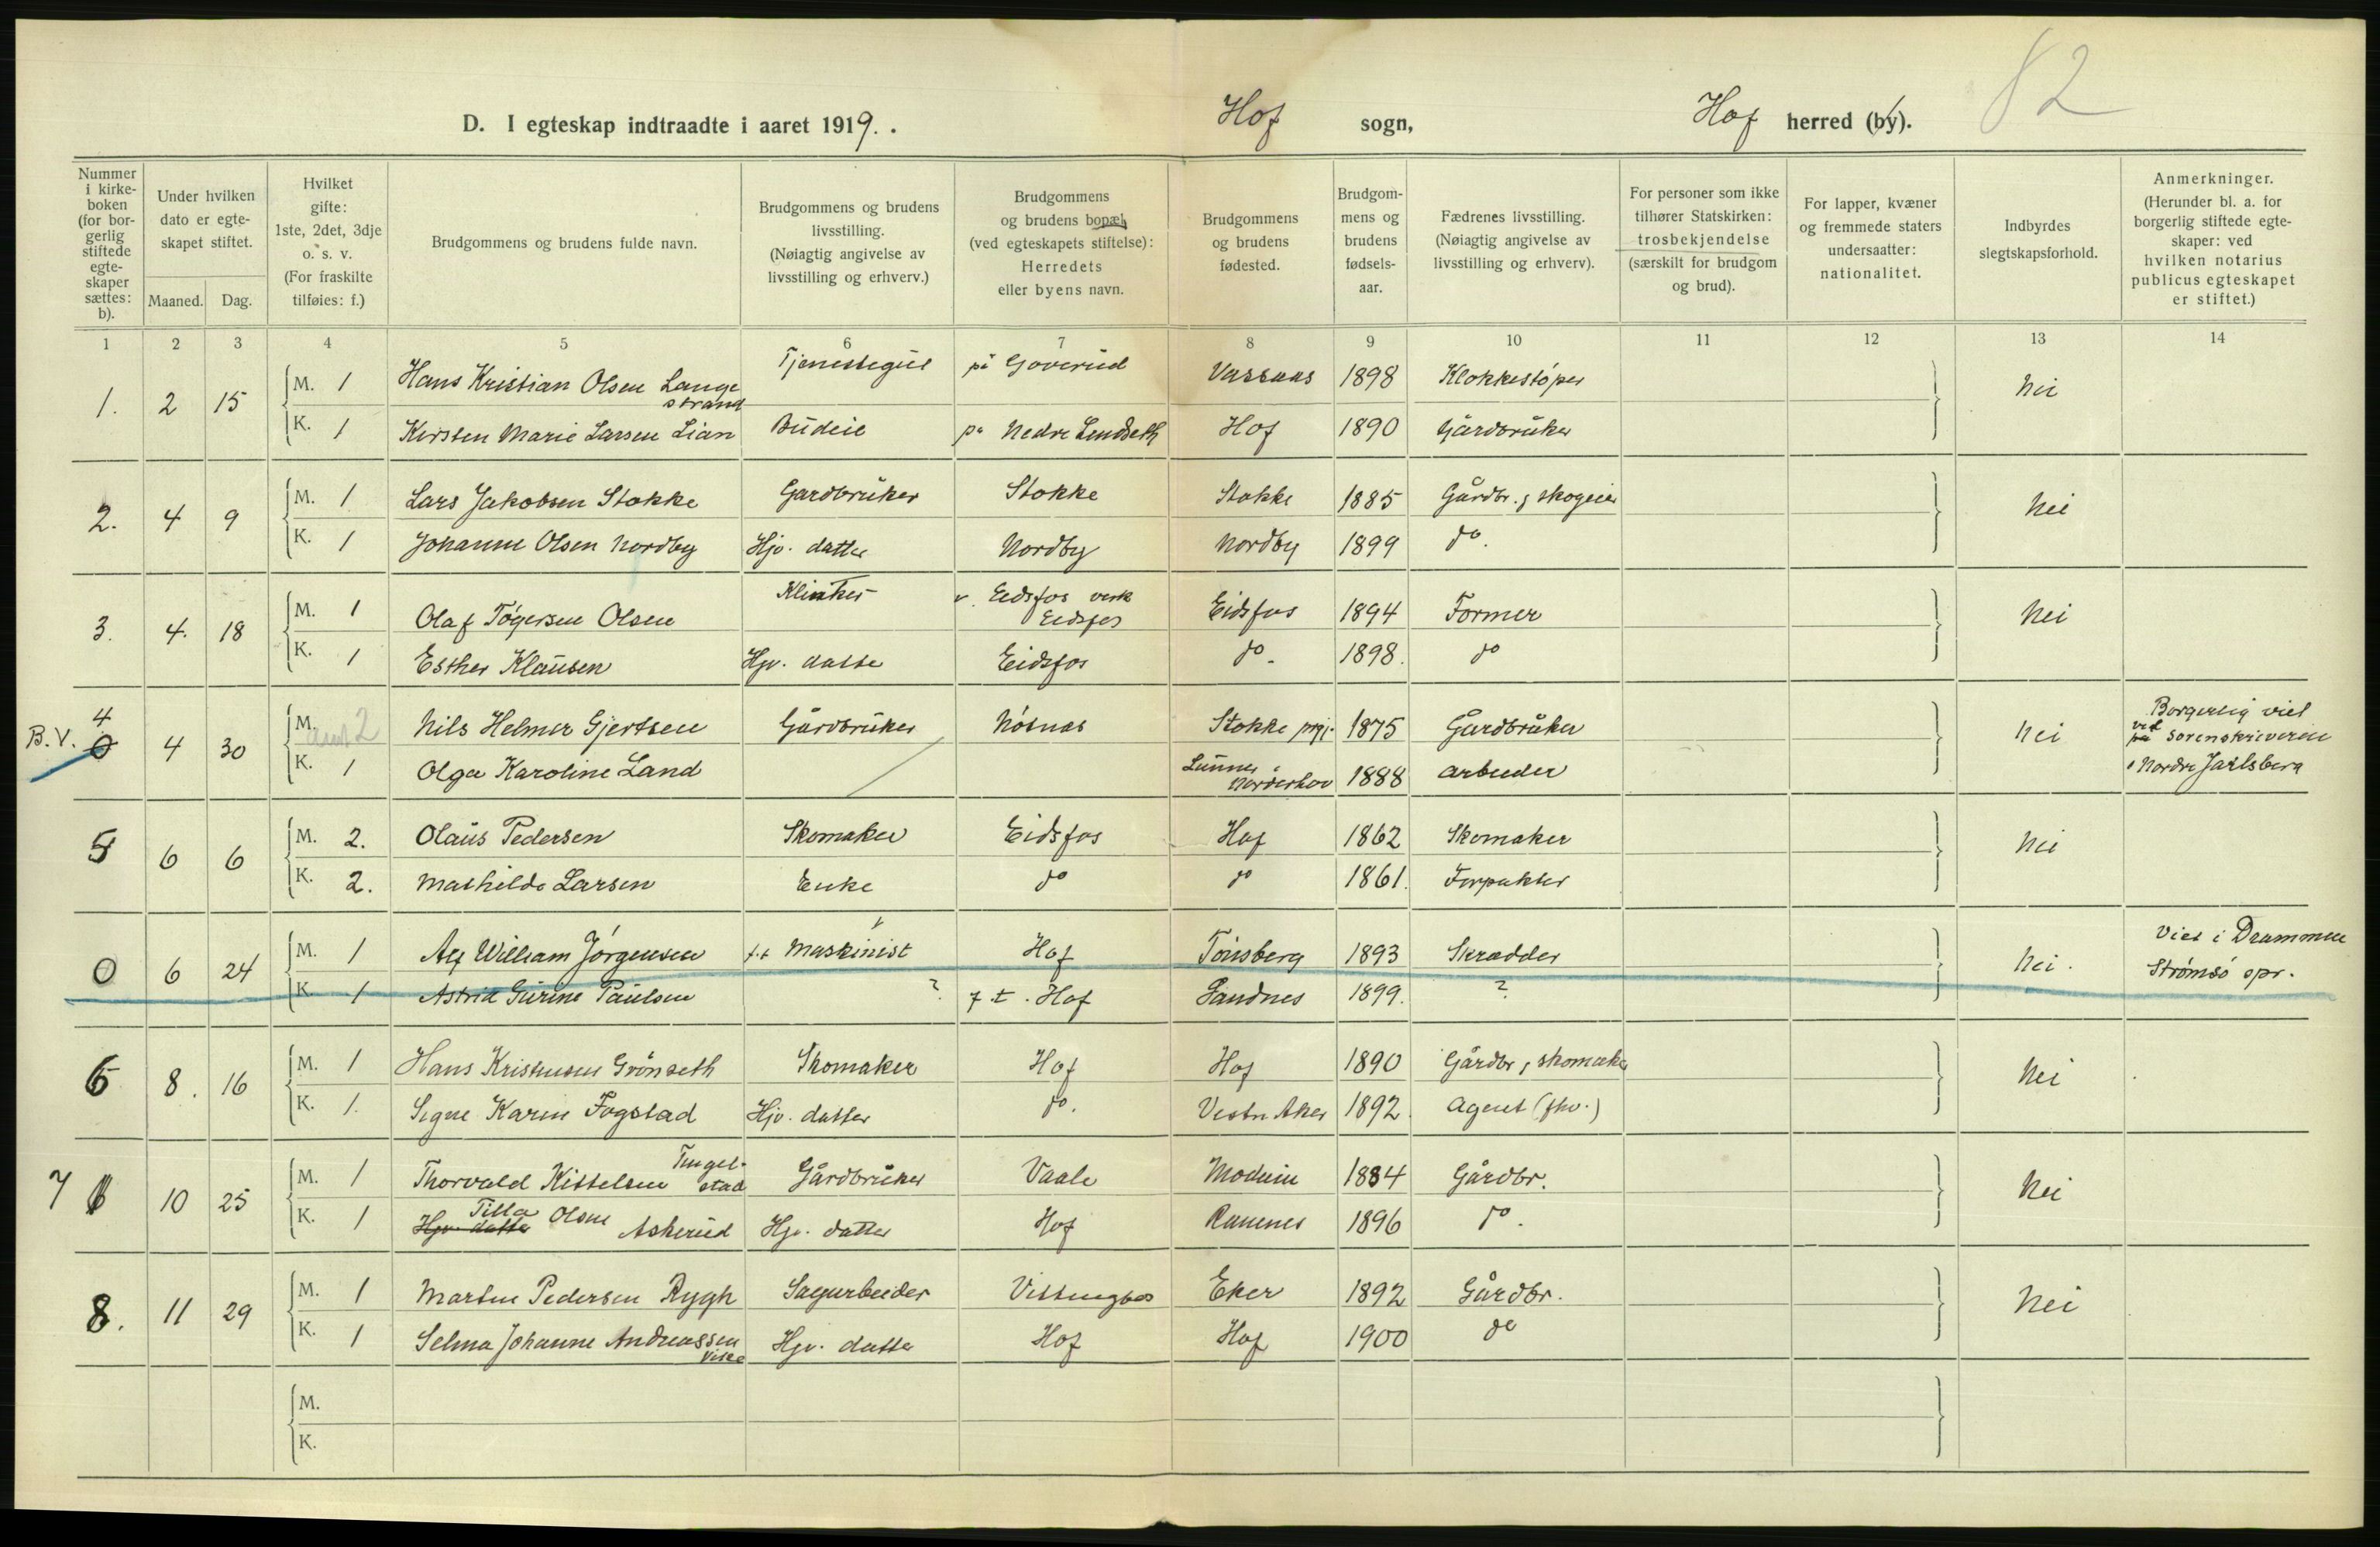 82
D. I egteskap indtraadte i aaret 1919. . Hof sogn, Hof herred (by).
Nummer i kirke-boken (for bor-gerlig stiftede egte-skaper sættes: b).
Under hvilken dato er egte-skapet stiftet.
Maaned. Dag.
Hvilket gifte: 1ste, 2det, 3dje o. s. v. (For fraskilte tilføies: f.)
Brudgommens og brudens fulde navn.
Brudgommens og brudens livsstilling. (Nøiagtig angivelse av livsstilling og erhverv.)
Brudgommens og brudens bopæl (ved egteskapets stiftelse): Herredets eller byens navn.
Brudgommens og brudens fødested.
Brudgom-mens og brudens fødsels-aar.
Fædrenes livsstilling. (Nøiagtig angivelse av livsstilling og erhverv).
For personer som ikke tilhører Statskirken: trosbekjendelse (særskilt for brudgom og brud).
For lapper, kvæner og fremmede staters undersaatter: nationalitet.
Indbyrdes slegtskapsforhold.
Anmerkninger. (Herunder bl. a. for borgerlig stiftede egte-skaper: ved hvilken notarius publicus egteskapet er stiftet.)
1 2 3 4 5 6 7 8 9 10 11 12 13 14
1. 2 15 M. 1 Hans Kristian Olsen Langestrand Tjenestegut på Goverud Vassaas 1898 Klokkestøper Nei
K. 1 Kirsten Marie Larsen Lian Budeie på Nedre Lendseth Hof 1890 Gårdbruker
2. 4 9 M. 1 Lars Jakobsen Stokke Gardbruker Stokke Stokke 1885 Gårdbr. & skogeier Nei
K. 1 Johanne Olsen Nordby Hjv. datter Nordby Nordby 1899 do.
3. 4. 18 M. 1 Olaf Tøgersen Olsen Klinker v. Eidsfos verk Eidsfos Eidsfos 1894 Former Nei
K. 1 Esther Klausen Hjv. datte Eidsfos do. 1898. do
B.V. 4 0 4 30 M. 2 Nils Helmer Gjertsen Gårdbruker Nøsnas Stokke prgj. 1875 Gardbruker Nei Borgerlig viet ved på sorenskriveren i Nordre Jarlsberg
K. 1 Olga Karoline Land Lunner Norderhov 1888 arbeider
5 6 6 M. 2. Olaus Pedersen Skomaker Eidsfos Hof 1862 Skomaker Nei
K. 2. Mathilde Larsen Enke do do 1861. Forpakter
0 6 24 M. 1 Alf William Jørgensen f.t Maskinist Hof Tønsberg 1893 Skrædder Nei. Viet i Drammen Strømsø spr.
K. 1 Astrid Gurine Paulsen ? f t. Hof Sandnes 1899. ?
6 8. 16 M. 1 Hans Kristensen Grönseth Skomaker Hof Hof 1890 Gårdbr & skomaker Nei
K. 1. Signe Karin Fogstad Hjv. datter do. Vestre Aker 1892. Agent (fhv.)
7 10 25 M. 1 Thorvald Kittelsen Tingelstad Gårdbruker Vaale Modum 1884 Gårdbr. Nei
K. 1 Hjv. datter Tilla Olsen Askerud Hjv. datter Hof Ramnes 1896 do.
8. 11 29 M. 1 Martin Pedersen Rygh Sagarbeider Vittingfos Eker 1892 Gårdbr. Nei
K. 1 Selma Johanne Andreassen Vike Hjv. datter Hof Hof 1900 do
M.
K.